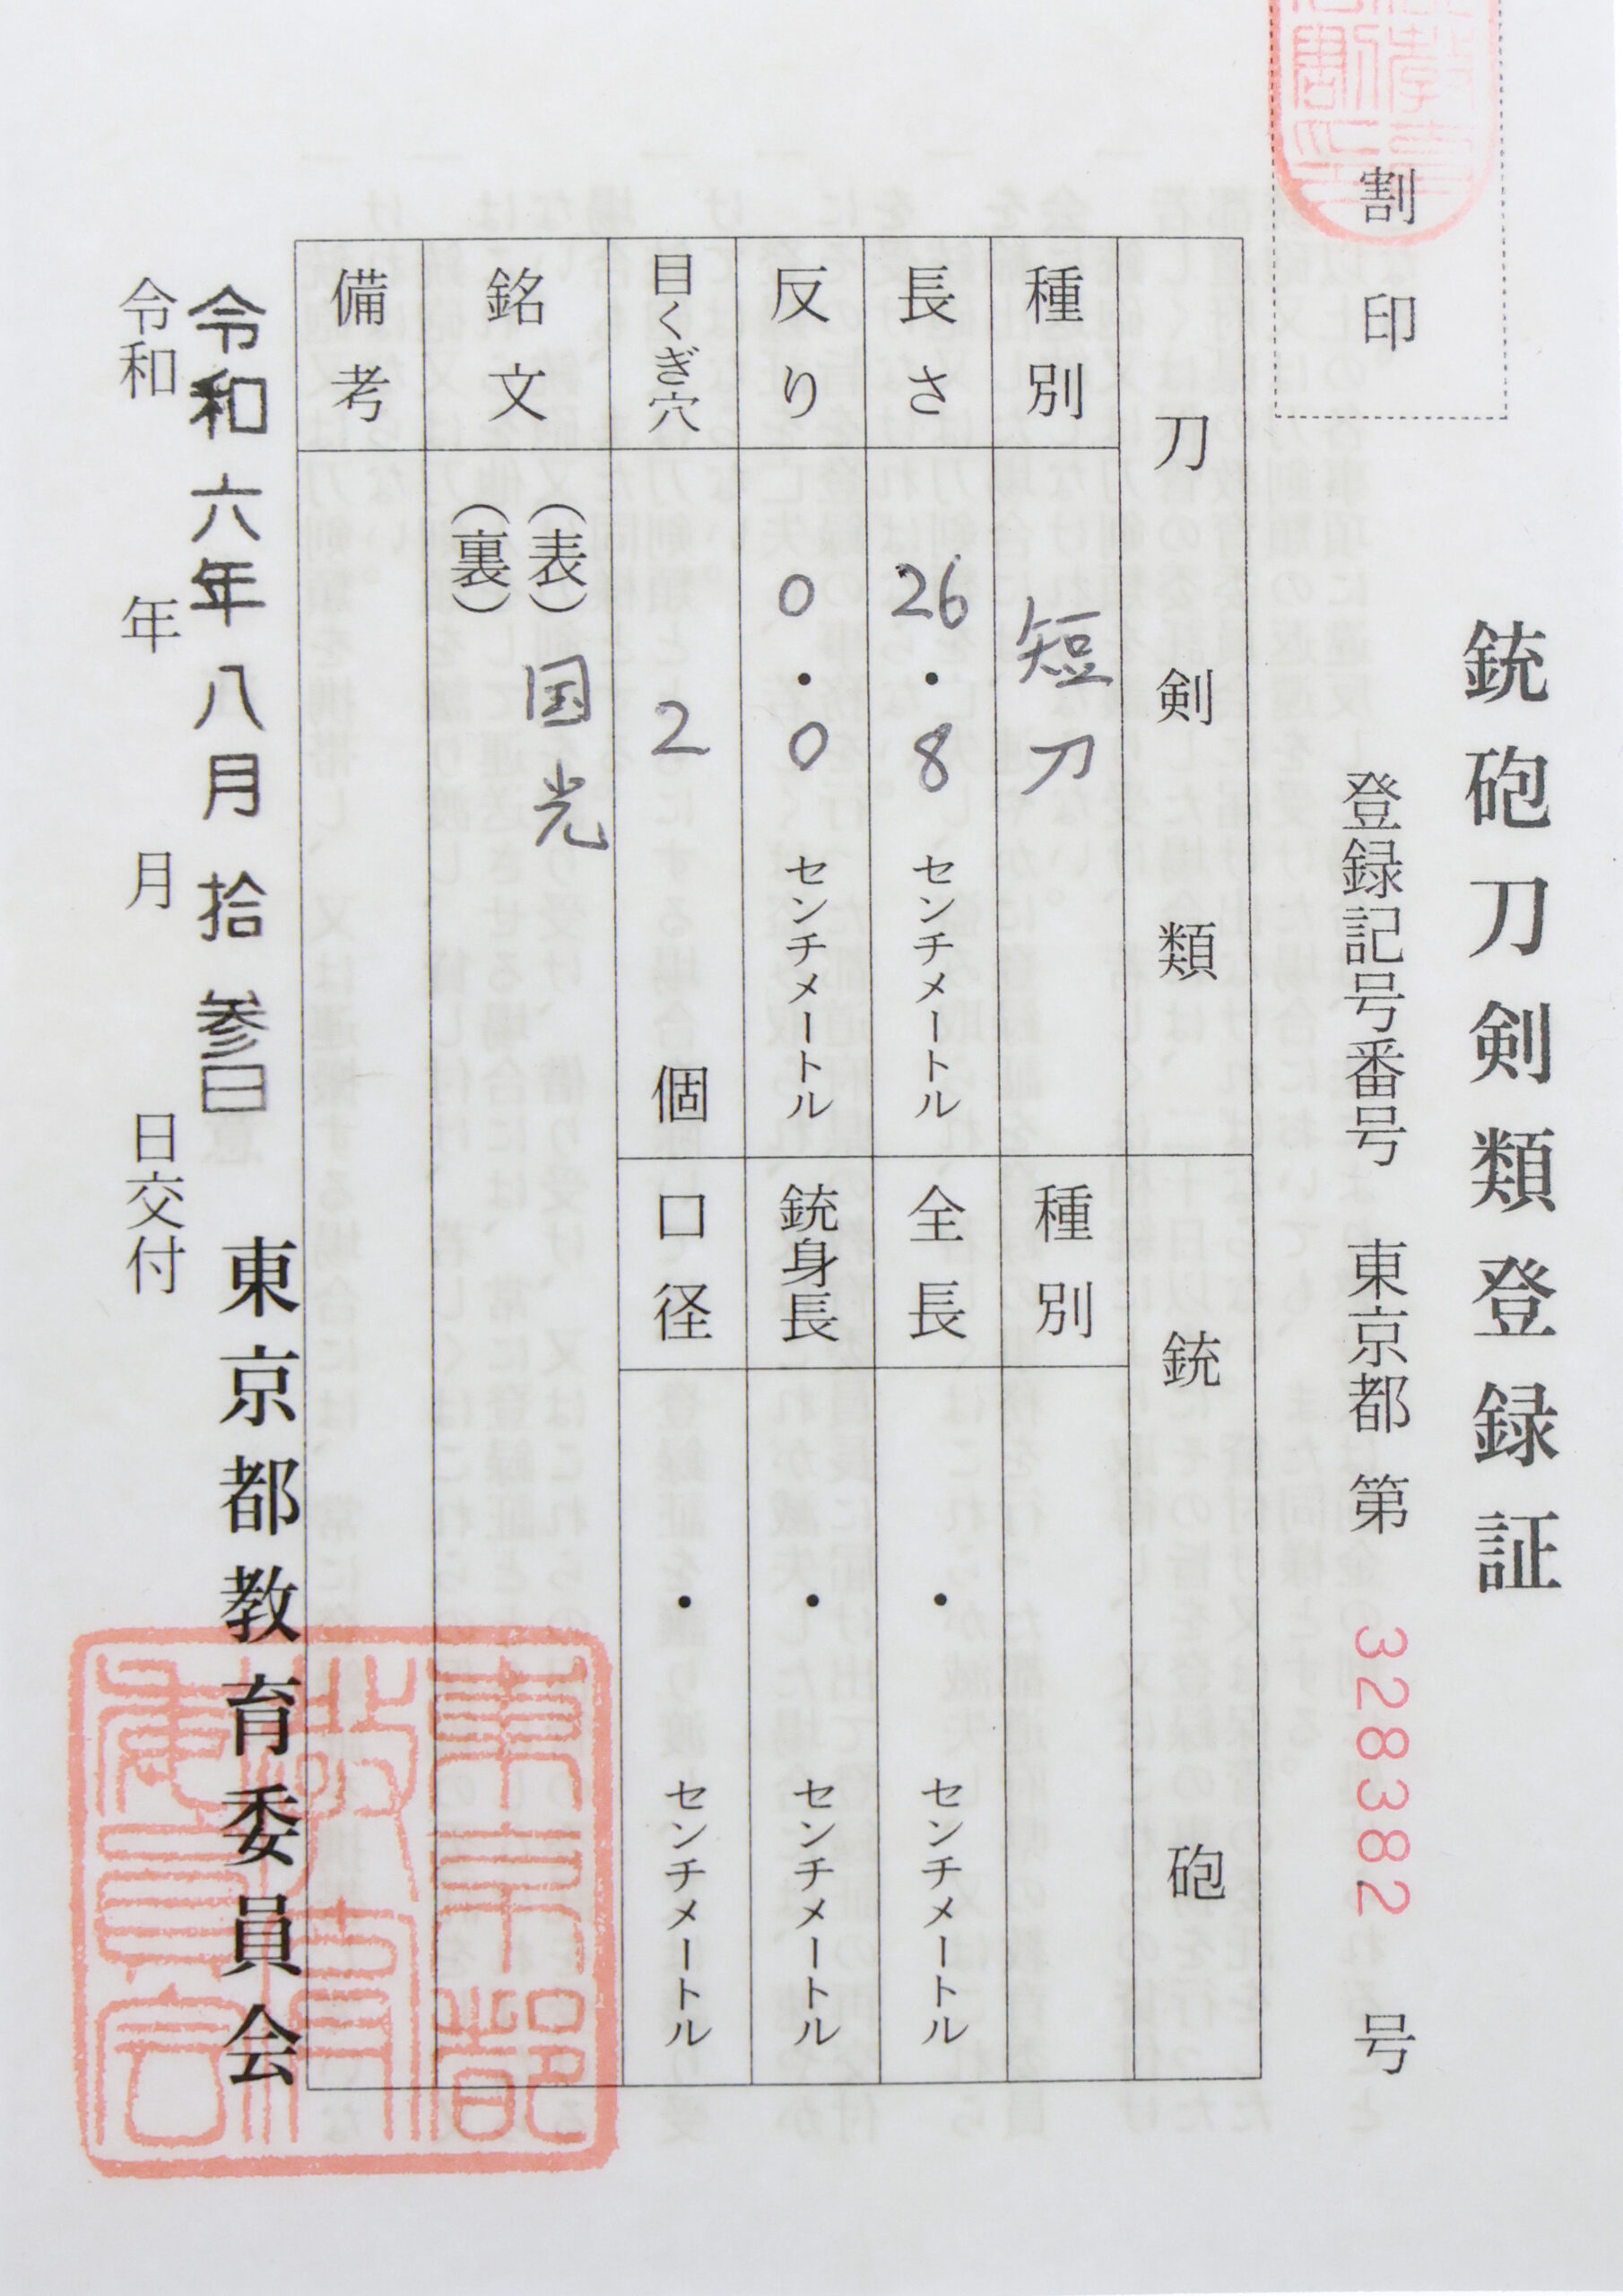 割印
銃砲刀剣類登録証
登録記号番号 東京都 第 328382 号
刀剣類
銃砲
種別 短刀
種別
長さ 26.8 センチメートル
全長 ・ センチメートル
反り 0.0 センチメートル
銃身長 ・ センチメートル
目くぎ穴 2 個
口径 ・ センチメートル
銘文 (表) 国光
(裏)
備考
令和六年八月拾参日
東京都教育委員会
令和 年 月 日交付